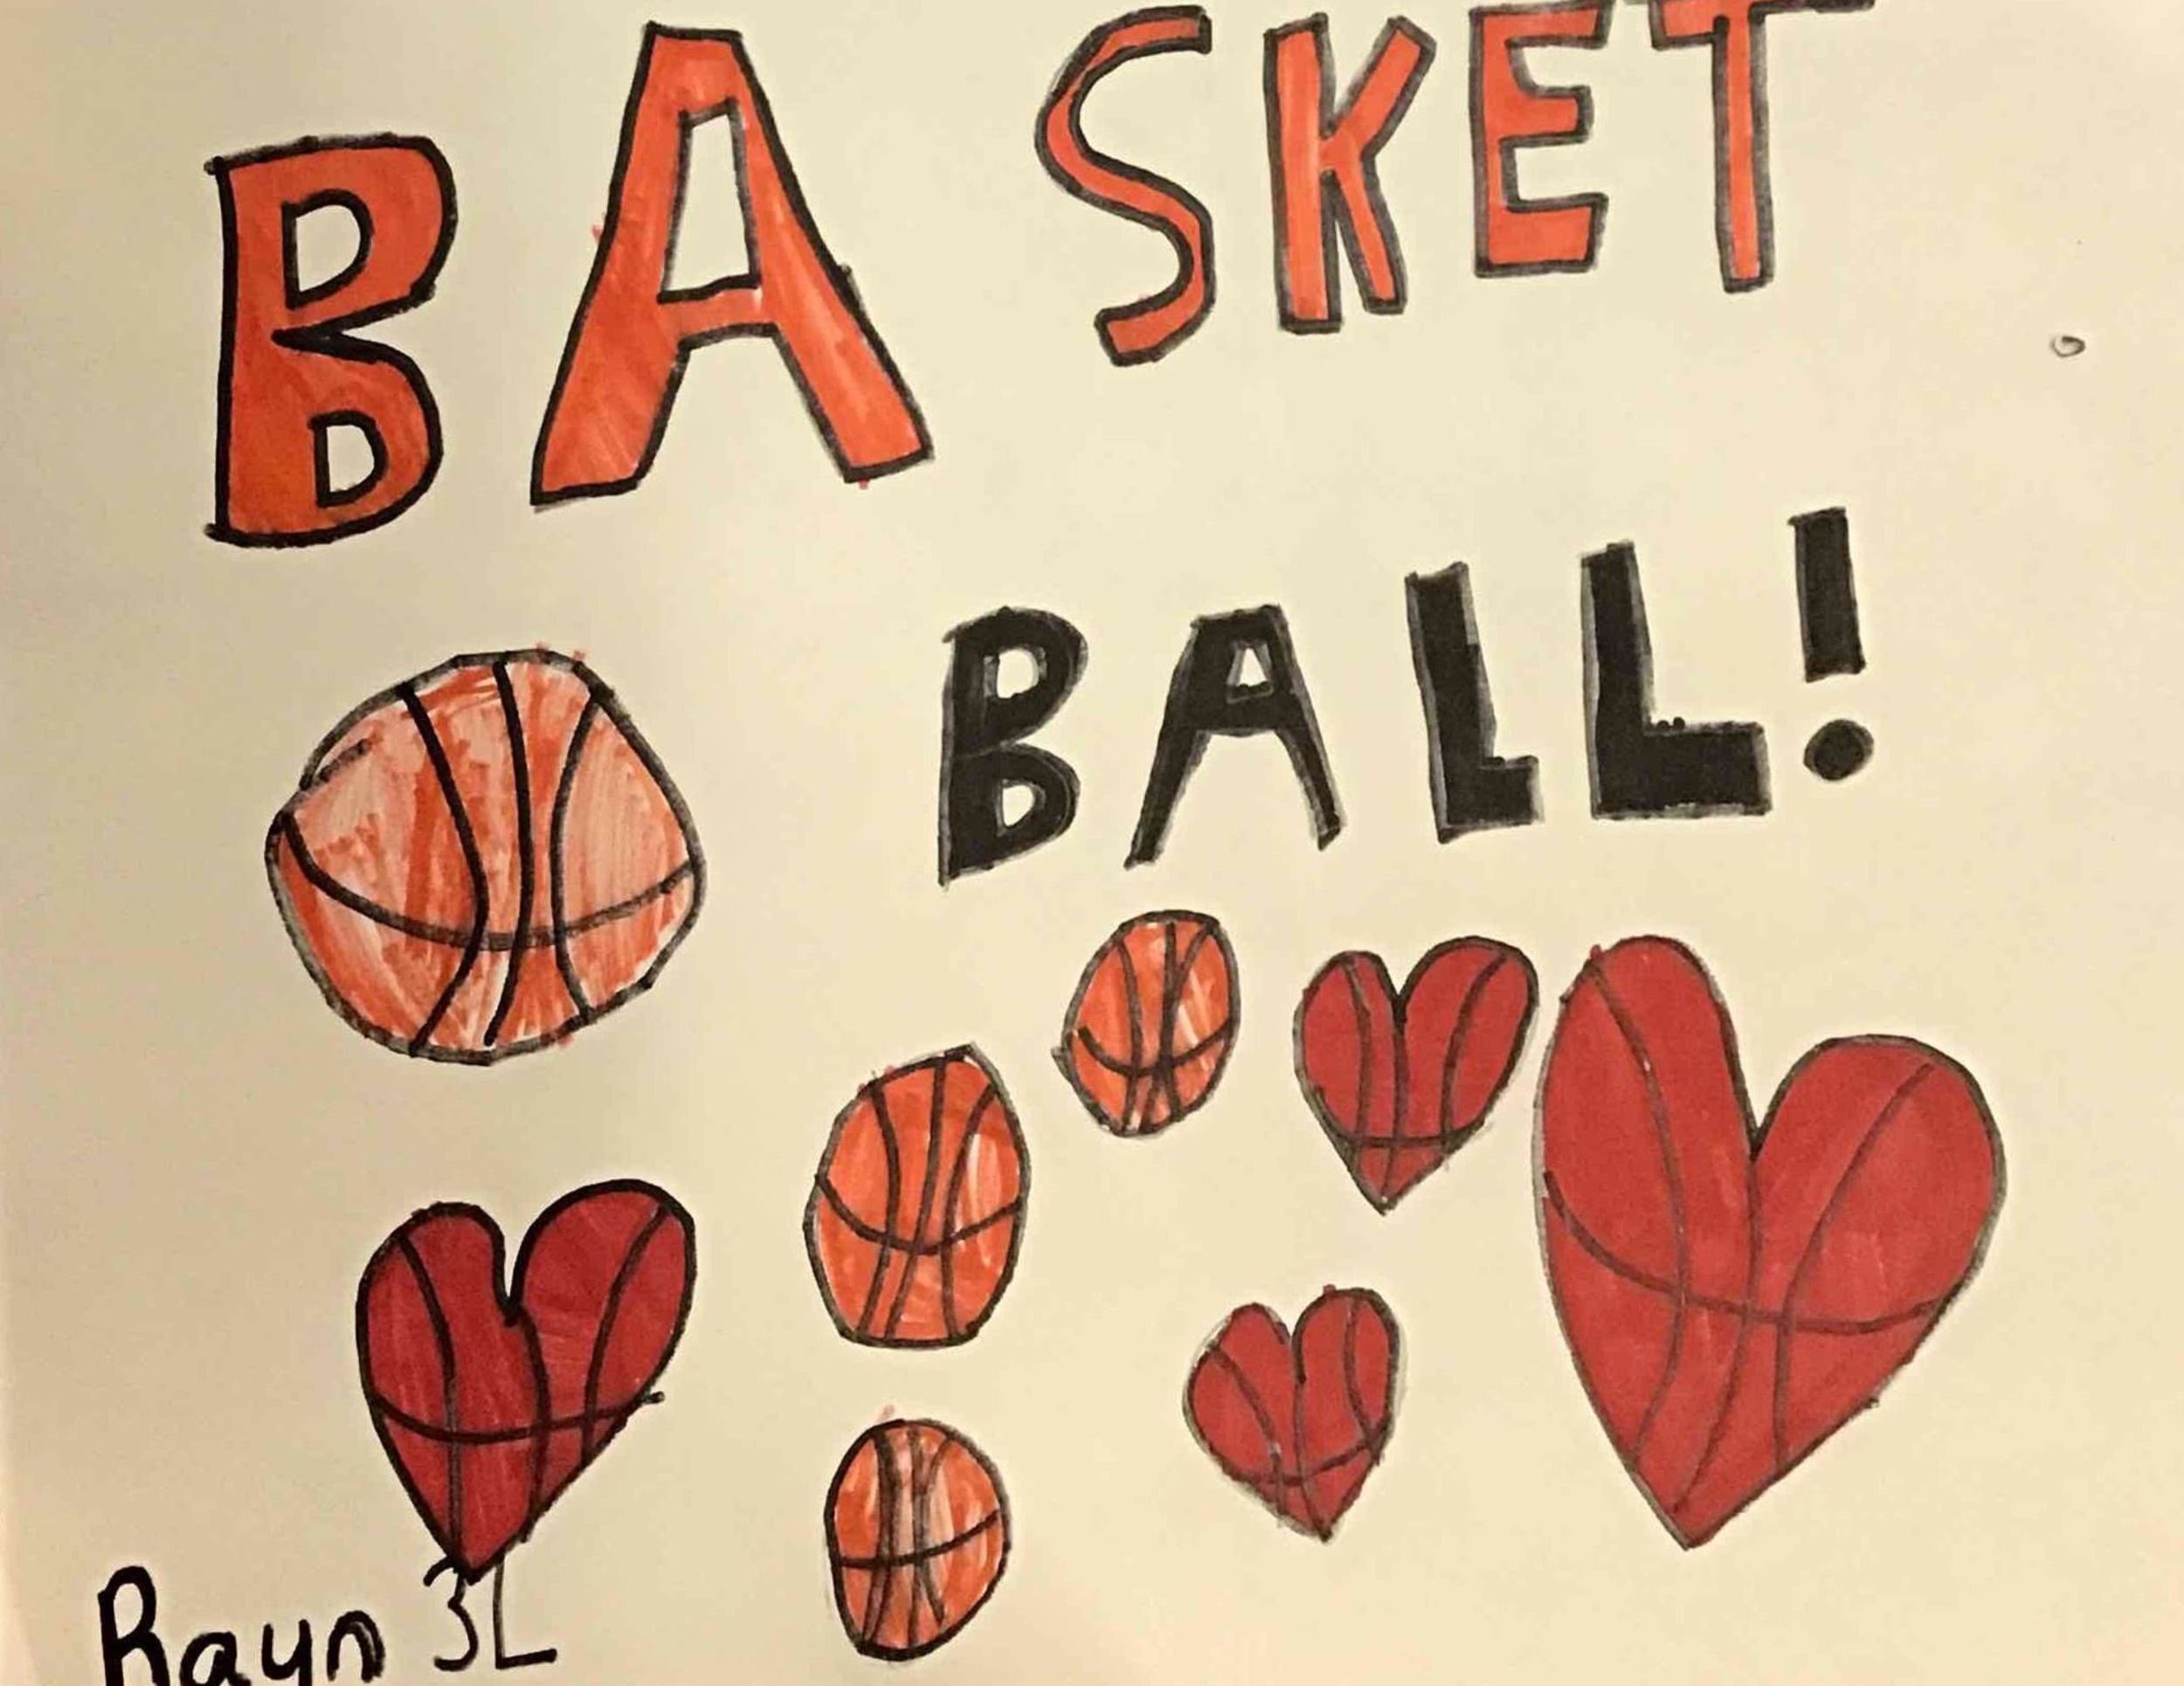 BASKET
BALL!
Rayn 3L